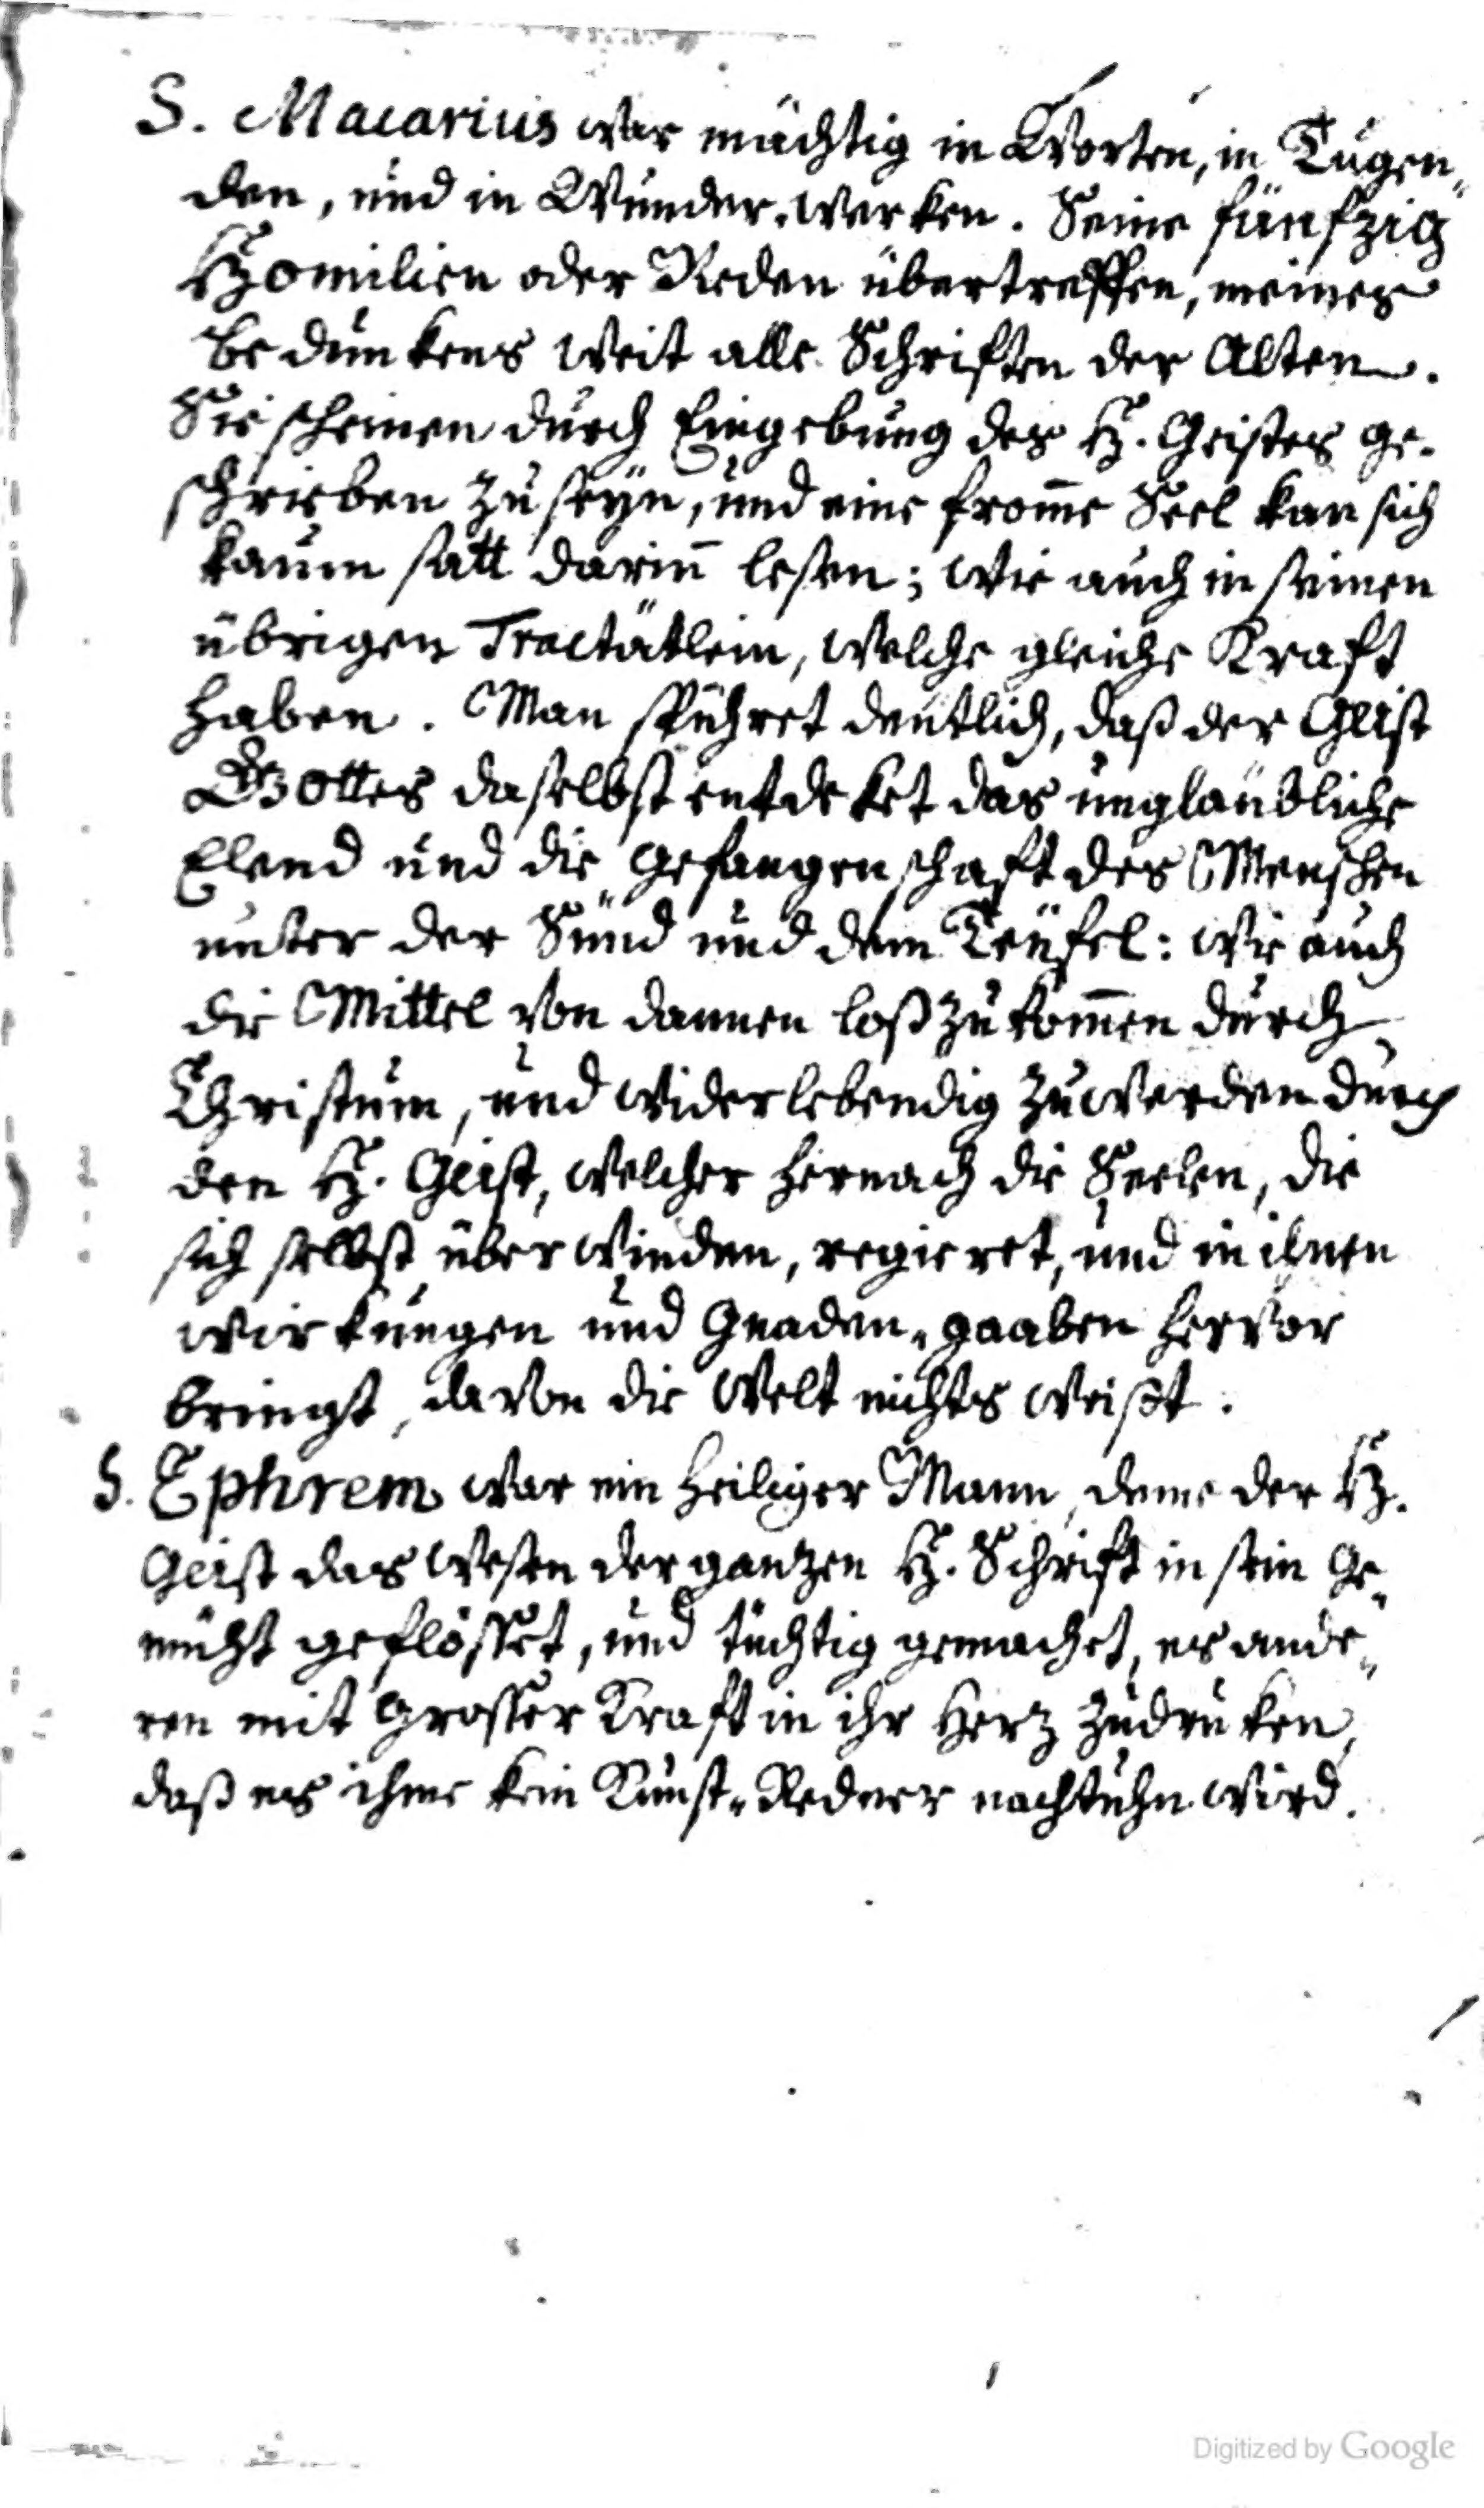 S. Macarius war mächtig in Worten, in Tugen„
den, und in Wunder-werken. Seine fünfzig
Homilien oder Reden übertreffen, meines
bedunkens weit alle Schriften der Alten.
Sie scheinen durch Eingebung des H. Geistes ge-
schrieben zu seÿn, und eine from̄e Seel kan sich
kaum satt darin̄ lesen; wie auch in seinen
übrigen Tractätlein, welche gleiche Kraft
haben. Man spühret deutlich, daß der Geist
Gottes daselbst entdeket das unglaübliche
Elend und die Gefangenschaft des Menschen
unter der Sünd und dem Teüfel: wie auch
die Mittel von dannen loß zu kom̄en durch
Christum, und wider lebendig zu werden durch
den H. Geist, welcher hernach die Seelen, die
sich selbst überwinden, regieret, und in ihnen
wirkungen und Gnaden-gaaben hervor
bringt, davon die Welt nichts weißt.
S. Ephrem war ein heiliger Mann, deme der H.
Geist das wesen der ganzen H. Schrift in sein Ge„
müht geflösset, und tüchtig gemachet, es ande„
ren mit grosser Kraft in ihr Herz zu druken,
daß es ihme kein Kunst-Redner nachtuhn wird.
Digitized by Google